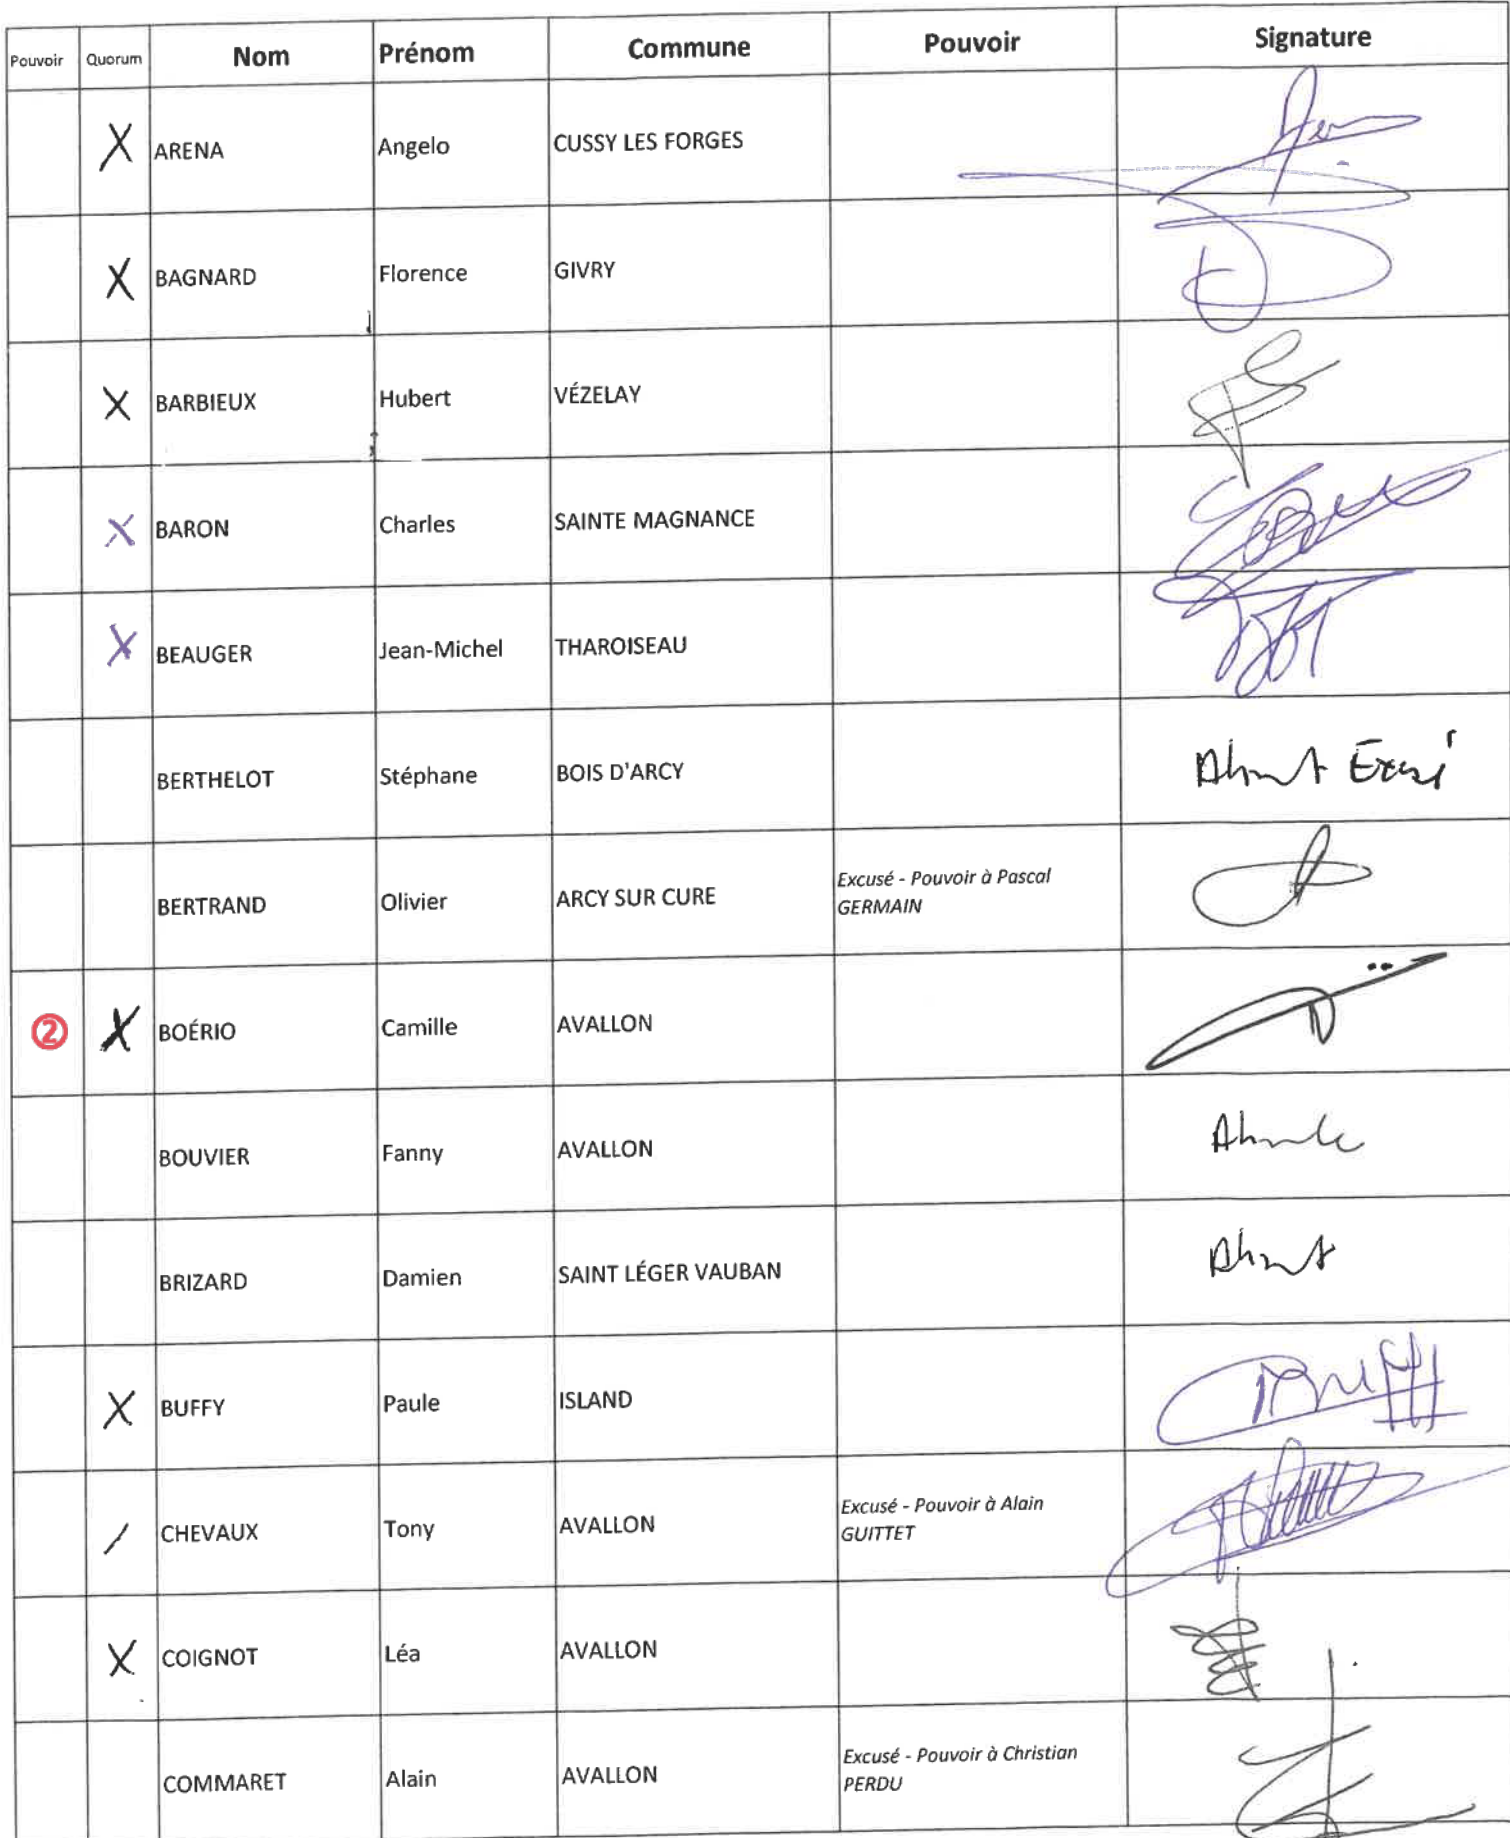 Pouvoir Quorum Nom Prénom Commune Pouvoir Signature
X ARENA Angelo CUSSY LES FORGES
X BAGNARD Florence GIVRY
X BARBIEUX Hubert VÉZELAY
X BARON Charles SAINTE MAGNANCE
X BEAUGER Jean-Michel THAROISEAU
BERTHELOT Stéphane BOIS D'ARCY Absent Excusé
BERTRAND Olivier ARCY SUR CURE Excusé - Pouvoir à Pascal
GERMAIN
② X BOÉRIO Camille AVALLON
BOUVIER Fanny AVALLON Absente
BRIZARD Damien SAINT LÉGER VAUBAN Absent
X BUFFY Paule ISLAND Buffy
/ CHEVAUX Tony AVALLON Excusé - Pouvoir à Alain
GUITTET
X COIGNOT Léa AVALLON
COMMARET Alain AVALLON Excusé - Pouvoir à Christian
PERDU